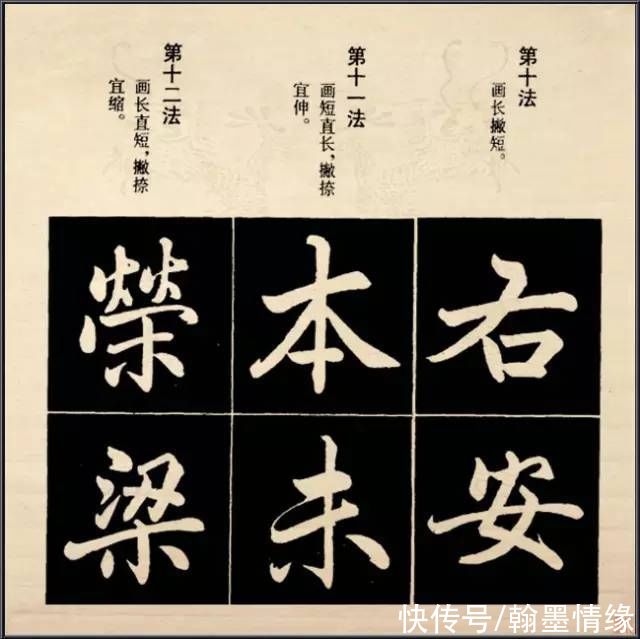 第十法
画长撇短。
第十一法
画短直长，撇捺
宜伸。
第十二法
画长直短，撇捺
宜缩。
右
安
本
未
榮
梁
快传号/翰墨情缘